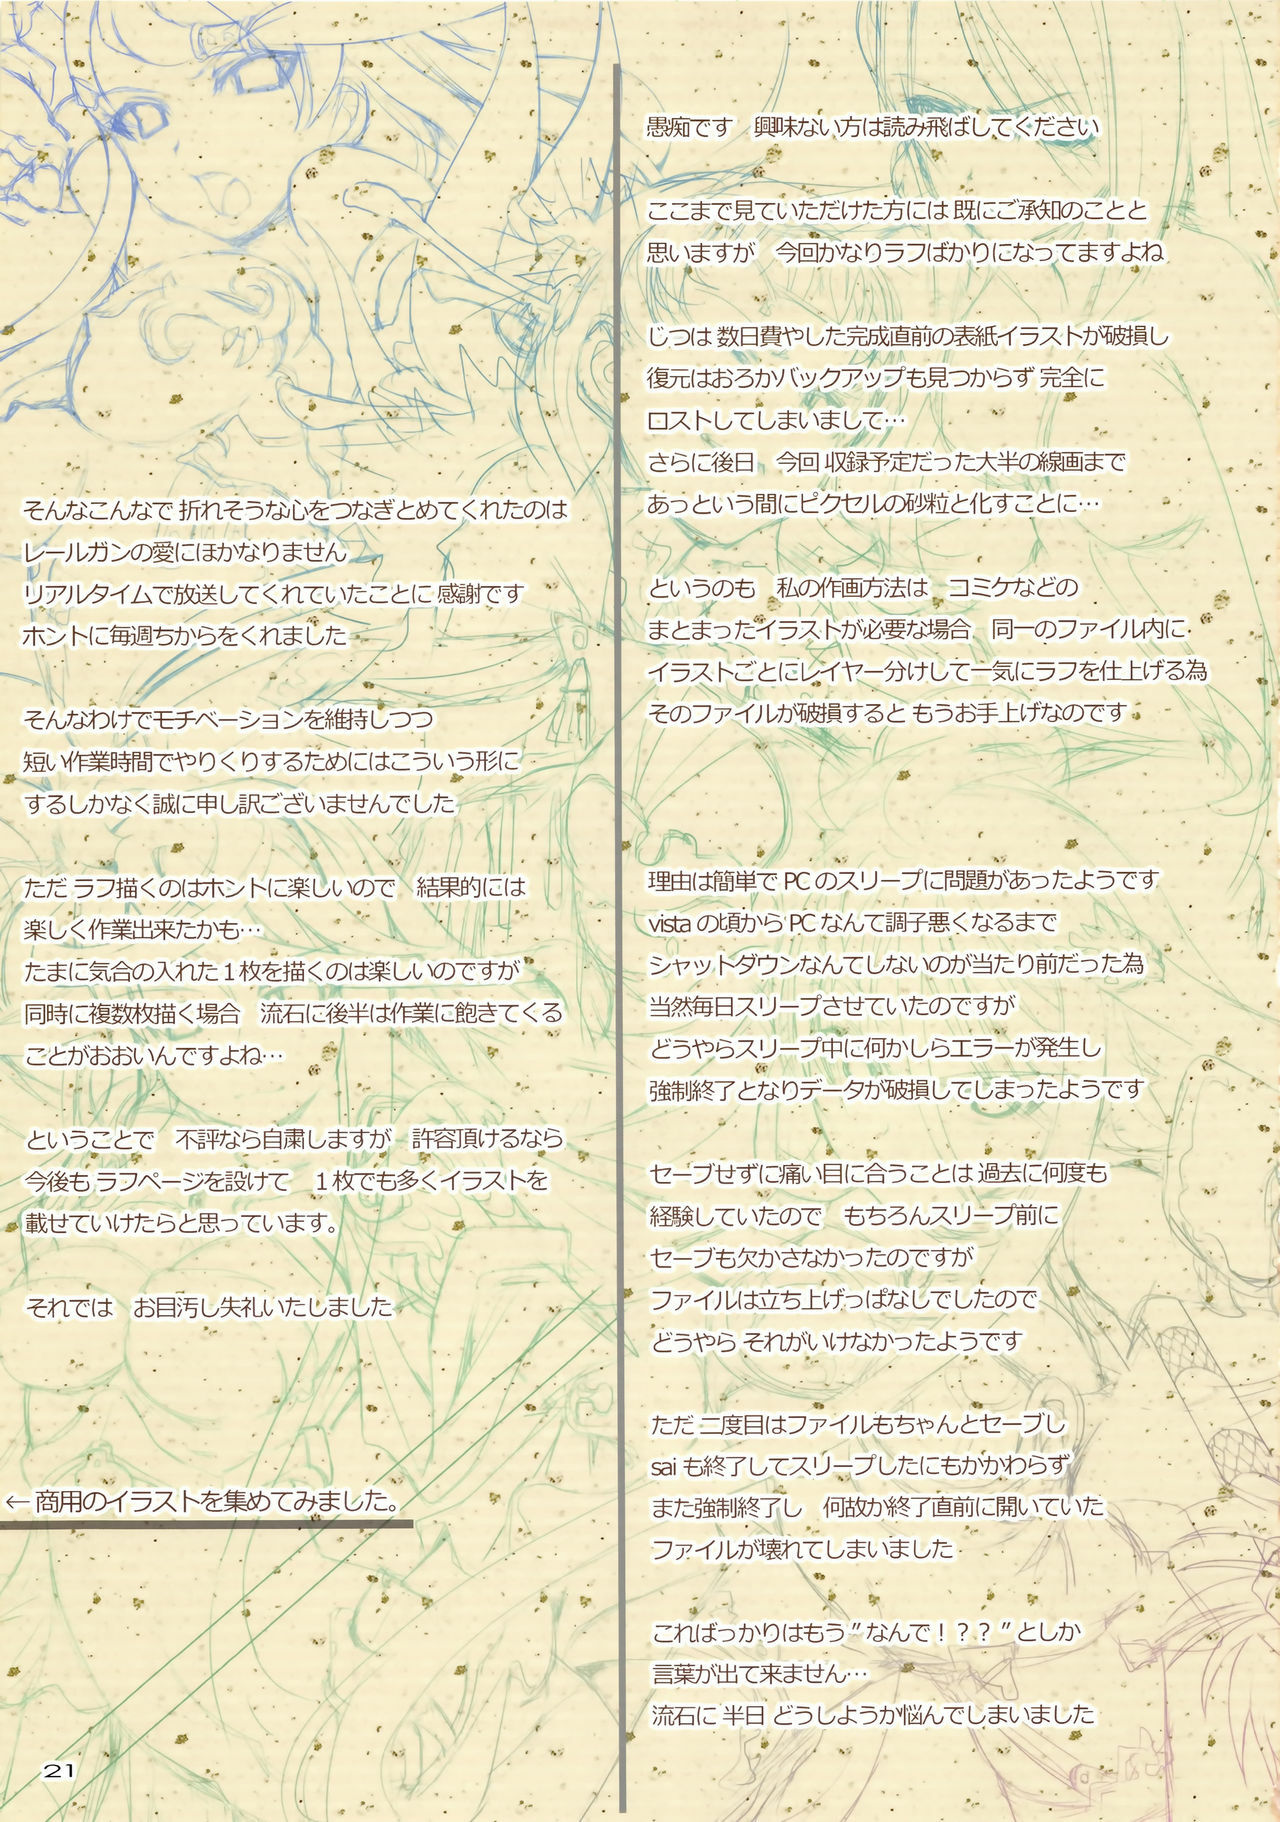 愚痴です　興味ない方は読み飛ばしてください
ここまで見ていただけた方には 既にご承知のことと
思いますが　今回かなりラフばかりになってますよね
じつは 数日費やした完成直前の表紙イラストが破損し
復元はおろかバックアップも見つからず 完全に
ロストしてしまいまして…
さらに後日　今回 収録予定だった大半の線画まで
あっという間にピクセルの砂粒と化すことに…
というのも　私の作画方法は　コミケなどの
まとまったイラストが必要な場合　同一のファイル内に
イラストごとにレイヤー分けして一気にラフを仕上げる為
そのファイルが破損すると もうお手上げなのです
理由は簡単で PC のスリープに問題があったようです
vista の頃から PC なんて調子悪くなるまで
シャットダウンなんてしないのが当たり前だった為
当然毎日スリープさせていたのですが
どうやらスリープ中に何かしらエラーが発生し
強制終了となりデータが破損してしまったようです
セーブせずに痛い目に合うことは 過去に何度も
経験していたので　もちろんスリープ前に
セーブも欠かさなかったのですが
ファイルは立ち上げっぱなしでしたので
どうやら それがいけなかったようです
ただ 二度目はファイルもちゃんとセーブし
sai も終了してスリープしたにもかかわらず
また強制終了し　何故か終了直前に開いていた
ファイルが壊れてしまいました
こればっかりはもう ″なんで！？？″ としか
言葉が出て来ません…
流石に 半日 どうしようか悩んでしまいました
そんなこんなで 折れそうな心をつなぎとめてくれたのは
レールガンの愛にほかなりません
リアルタイムで放送してくれていたことに 感謝です
ホントに毎週ちからをくれました
そんなわけでモチベーションを維持しつつ
短い作業時間でやりくりするためにはこういう形に
するしかなく誠に申し訳ございませんでした
ただ ラフ描くのはホントに楽しいので　結果的には
楽しく作業出来たかも…
たまに気合の入れた 1 枚を描くのは楽しいのですが
同時に複数枚描く場合　流石に後半は作業に飽きてくる
ことがおおいんですよね…
ということで　不評なら自粛しますが　許容頂けるなら
今後も ラフページを設けて　1 枚でも多くイラストを
載せていけたらと思っています。
それでは　お目汚し失礼いたしました
← 商用のイラストを集めてみました。
21